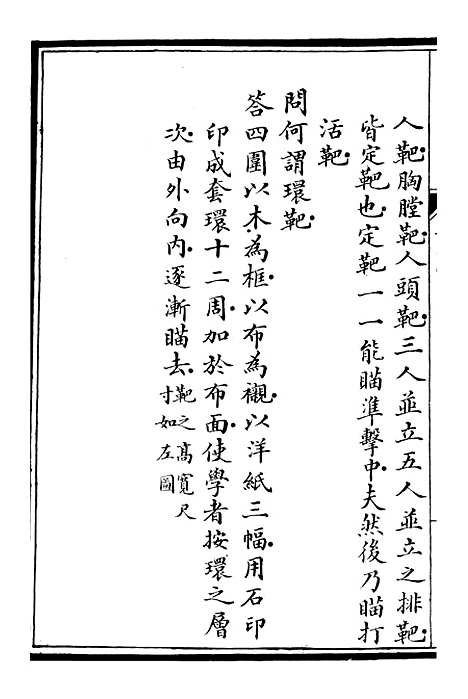 人靶胸膛靶人頭靶三人並立五人並立之排靶
皆定靶也定靶一一能瞄準擊中夫然後乃瞄打
活靶
問何謂環靶
答四圍以木為框以布為襯以洋紙三幅用石印
印成套環十二周加於布面使學者按環之層
次由外向內逐漸瞄去靶之高寬尺
寸如左圖